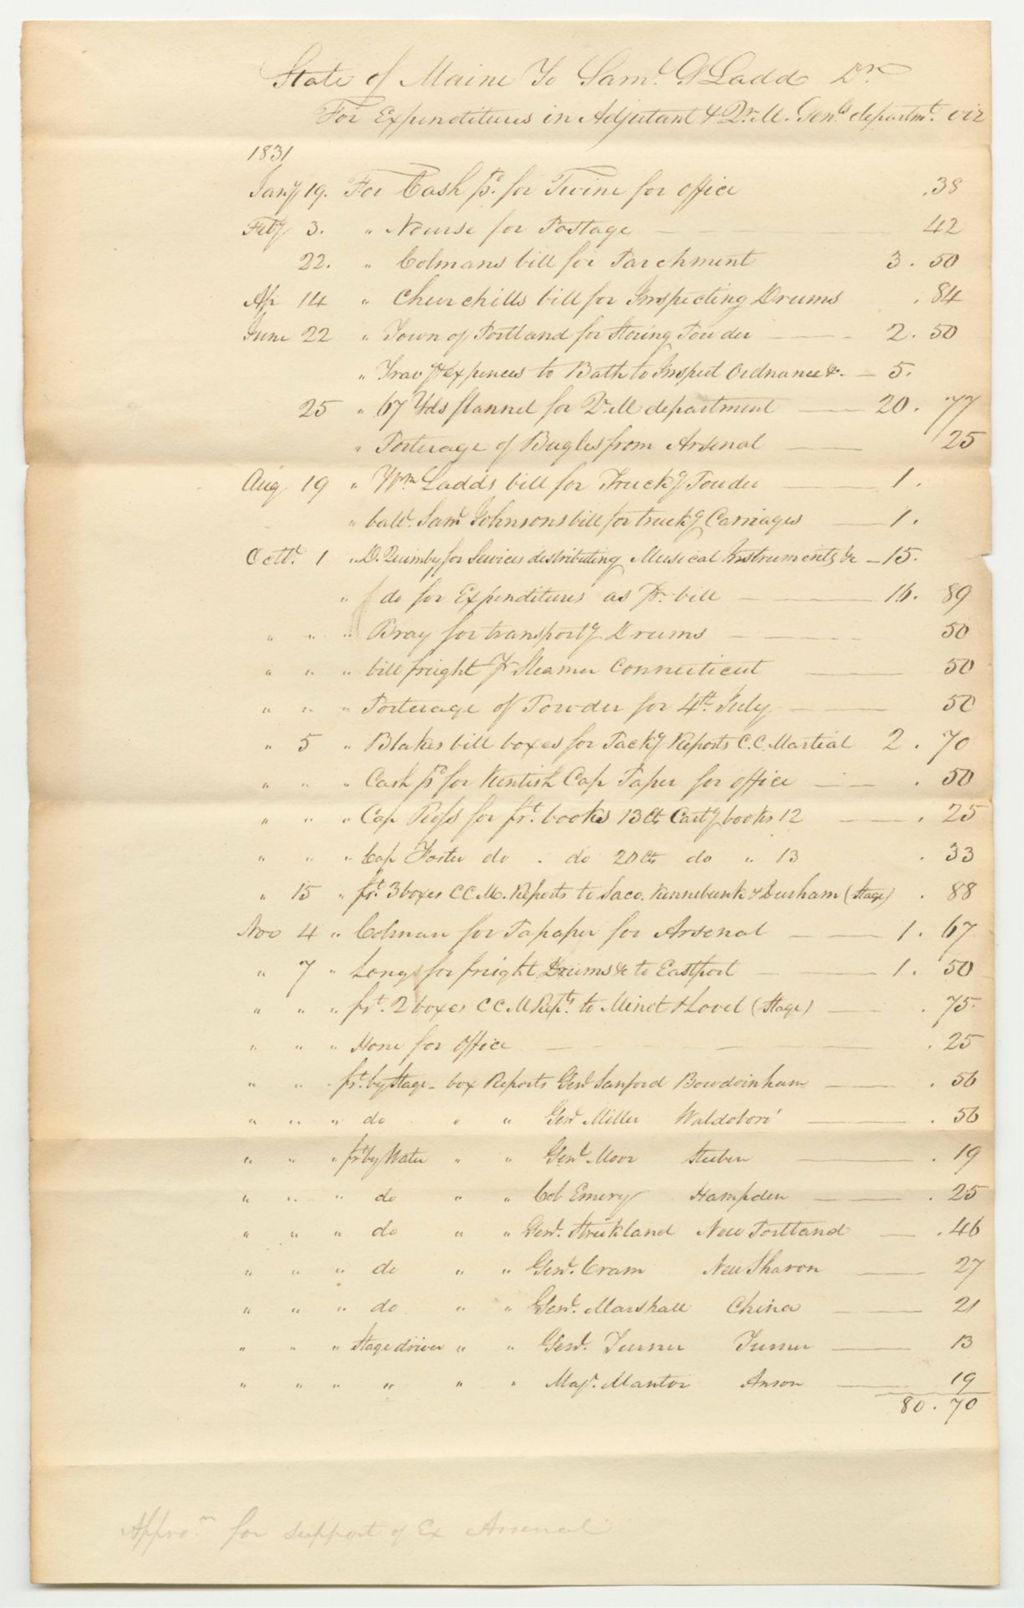 State of Maine To Saml. G Ladd Dr.
For Expenditures in Adjutant & Qr. M. Genls. departmt. viz
1831
Jany 19. For Cash pd. for Twine for office .38
Feby 3. " Nourse for Postage 42
22. " Colmans bill for Parchment 3.50
Ap 14 " Churchills bill for Inspecting Drums .84
June 22 " Town of Portland for Storing Powder 2.50
" Travg expences to Bath to Inspect Ordnance &. 5.
25 " 67 Yds flannel for Qr. M department 20.77
" Porterage of Bugles from Arsenal 25
Aug 19 " Wm Ladds bill for Truckg Powder 1.
" bald. Saml Johnsons bill for truckg Carriages 1.
Octr. 1 " D. Quimby for Services distributing Musical Instruments &c 15.
" do for Expenditures as pr. bill 16.89
" " " Bray for transportg Drums 50
" " " bill freight pr Steamer Connecticut 50
" " " Porterage of Powder for 4th. July 50
" 5 " Blakes bill boxes for Packg Reports C.C. Martial 2.70
" " " Cash pd for Kentish Cap Paper for office .50
" " " Cap Ross for frt. books 13 cts Cartg books 12 .25
" " " Cap Foster do . do 20 cts do " 13 .33
" 15 " frt. 3 boxes C C M. Reports to Saco. Kennebunk & Durham (Stage) .88
Nov 4 " Colman for Papaper for Arsenal 1.67
" 7 " Long for freight Drums &c to Eastport 1.50
" " " frt. 2 boxes C C M Repts. to Minot & Lovel (Stage) .75
" " " Hone for office .25
" " " frt. by Stage - box Reports Genl Sanford Bowdoinham .56
" " " do " " Genl Miller Waldoboro' .56
" " " frt by Water " " Genl. Moor Steuben .19
" " " do " " Col Emery Hampden .25
" " " do " " Genl. Strickland New Portland .46
" " " do " " Genl. Cram New Sharon 27
" " " do " " Genl. Marshall China 21
" " " Stage driver " " Genl. Turner Turner 13
" " " " " " Majr. Mantor Anson 19
80.70
Appron. for support of Ex Arsenal